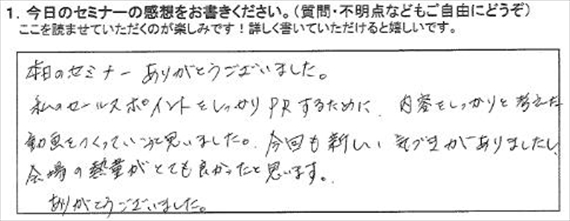 1. 今日のセミナーの感想をお書きください。(質問・不明点などもご自由にどうぞ)
ここを読ませていただくのが楽しみです!詳しく書いていただけると嬉しいです。
本日のセミナー ありがとうございました。
私のセールスポイントをしっかりPRするために、内容をしっかりと考えた
動画をつくっていこうと思いました。今回も新しい気づきがありましたし、
会場の熱量がとても良かったと思います。
ありがとうございました。